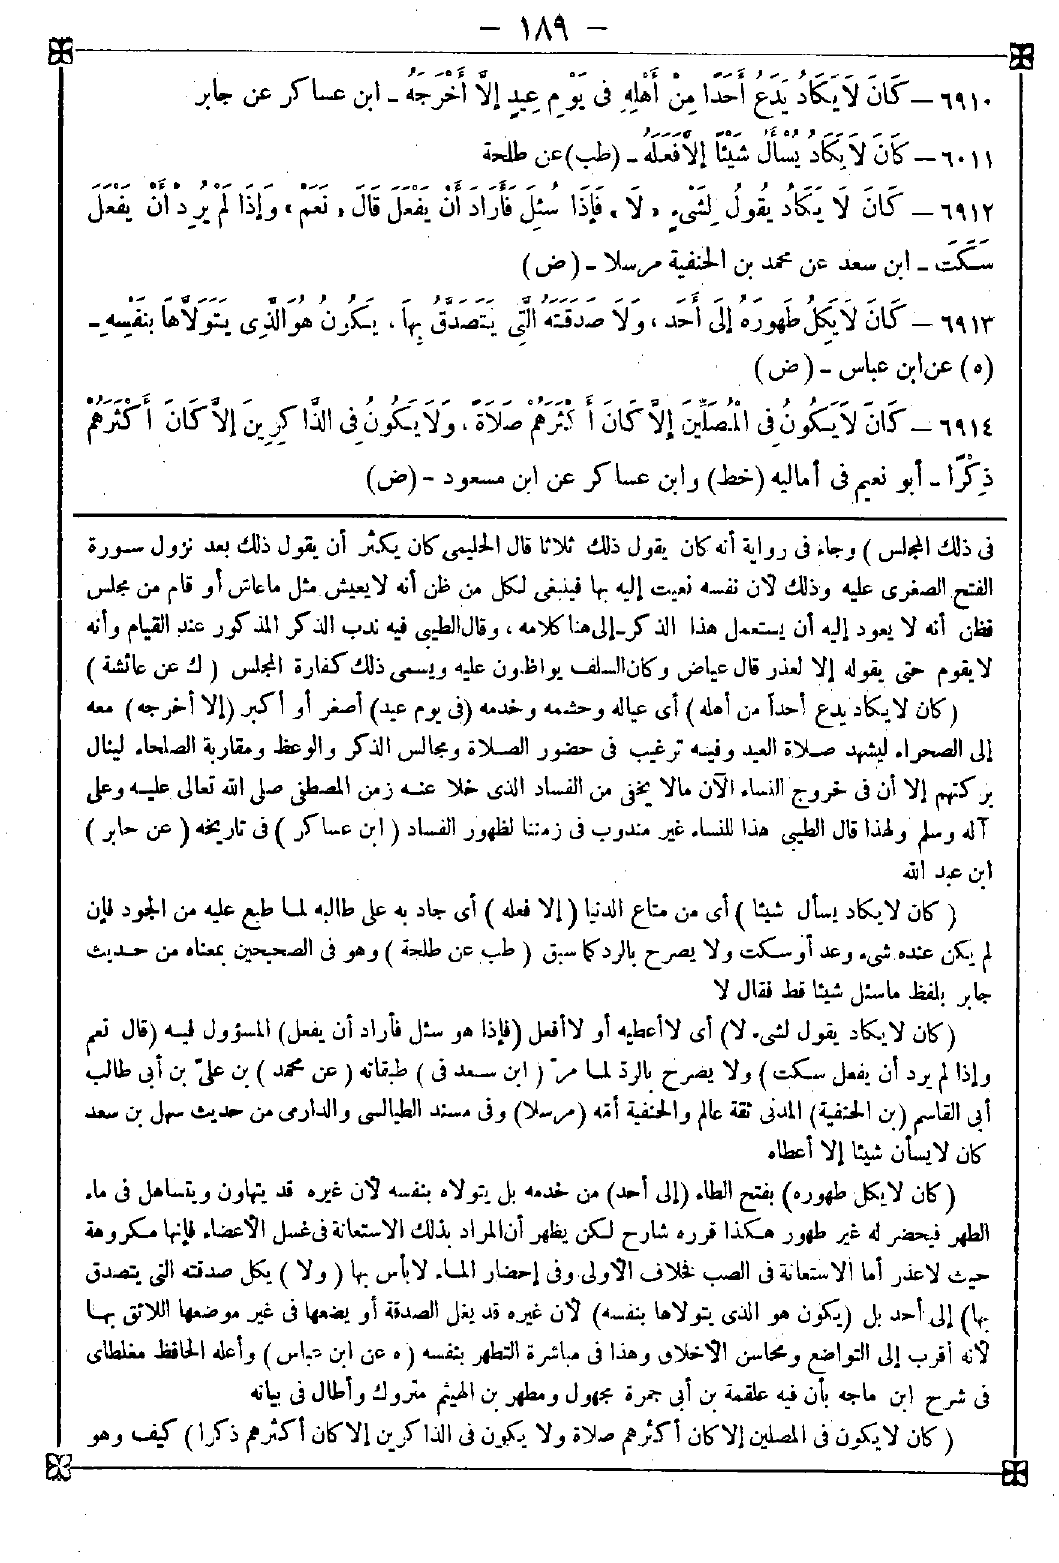 – ١٨٩ –
٦٩١٠ – كَانَ لَا يَكَادُ يَدَعُ أَحَدًا مِنْ أَهْلِهِ فِى يَوْمِ عِيدٍ إِلَّا أَخْرَجَهُ - ابن عساكر عن جابر
٦٠١١ – كَانَ لَا يَكَادُ يُسْأَلُ شَيْئًا إِلَّا فَعَلَهُ - (طب) عن طلحة
٦٩١٢ – كَانَ لَا يَكَادُ يَقُولُ لِشَىْءٍ «لَا» فَإِذَا سُئِلَ فَأَرَادَ أَنْ يَفْعَلَ قَالَ «نَعَمْ» وَإِذَا لَمْ يُرِدْ أَنْ يَفْعَلَ
سَكَتَ - ابن سعد عن محمد بن الحنفية مرسلا - (ض)
٦٩١٣ – كَانَ لَا يَكِلُ طَهُورَهُ إِلَى أَحَدٍ، وَلَا صَدَقَتَهُ الَّتِى يَتَصَدَّقُ بِهَا، يَكُونُ هُوَ الَّذِى يَتَوَلَّاهَا بِنَفْسِهِ -
(ه) عن ابن عباس - (ض)
٦٩١٤ – كَانَ لَا يَكُونُ فِى الْمُصَلِّينَ إِلَّا كَانَ أَكْثَرَهُمْ صَلَاةً، وَلَا يَكُونُ فِى الذَّاكِرِينَ إِلَّا كَانَ أَكْثَرَهُمْ
ذِكْرًا - أبو نعيم فى أماليه (خط) وابن عساكر عن ابن مسعود - (ض)
فى ذلك المجلس) وجاء فى رواية أنه كان يقول ذلك ثلاثا قال الحليمى كان يكثر أن يقول ذلك بعد نزول سورة
الفتح الصغرى عليه وذلك لأن نفسه نعيت إليه بها فينبغى لكل من ظن أنه لا يعيش مثل ما عاش أو قام من مجلس
فظن أنه لا يعود إليه أن يستعمل هذا الذكر - إلى هنا كلامه، وقال الطيبى فيه ندب الذكر المذكور عند القيام وأنه
لا يقوم حتى يقوله إلا لعذر قال عياض وكان السلف يواظبون عليه ويسمى ذلك كفارة المجلس (ك عن عائشة)
(كان لا يكاد يدع أحداً من أهله) أى عياله وحشمه وخدمه (فى يوم عيد) أصغر أو أكبر (إلا أخرجه) معه
إلى الصحراء ليشهد صلاة العيد وفيه ترغيب فى حضور الصلاة ومجالس الذكر والوعظ ومقاربة الصلحاء لينال
بركتهم إلا أن فى خروج النساء الآن مالا يخفى من الفساد الذى خلا عنه زمن المصطفى صلى الله تعالى عليه وعلى
آله وسلم ولهذا قال الطيبى هذا للنساء غير مندوب فى زمننا لظهور الفساد (ابن عساكر) فى تاريخه (عن جابر)
ابن عبد الله
(كان لا يكاد يسأل شيئا) أى من متاع الدنيا (إلا فعله) أى جاد به على طالبه لما طبع عليه من الجود فإن
لم يكن عنده شىء وعد أو سكت ولا يصرح بالرد كما سبق (طب عن طلحة) وهو فى الصحيحين بمعناه من حديث
جابر بلفظ ما سئل شيئا قط فقال لا
(كان لا يكاد يقول لشىء لا) أى لا أعطيه أو لا أفعل (فإذا هو سئل فأراد أن يفعل) المسؤول فيه (قال نعم
وإذا لم يرد أن يفعل سكت) ولا يصرح بالردّ لما مرّ (ابن سعد فى) طبقاته (عن محمد) بن علىّ بن أبى طالب
أبى القاسم (بن الحنفية) المدنى ثقة عالم والحنفية أمّه (مرسلا) وفى مسند الطيالسى والدارمى من حديث سهل بن سعد
كان لا يسأن شيئا إلا أعطاه
(كان لا يكل طهوره) بفتح الطاء (إلى أحد) من خدمه بل يتولاه بنفسه لأن غيره قد يتهاون ويتساهل فى ماء
الطهر فيحضر له غير طهور هكذا قرره شارح لكن يظهر أن المراد بذلك الاستعانة فى غسل الأعضاء فإنها مكروهة
حيث لا عذر أما الاستعانة فى الصب فخلاف الأولى وفى إحضار الماء لا بأس بها (ولا) يكل صدقته التى يتصدق
بها) إلى أحد بل (يكون هو الذى يتولاها بنفسه) لأن غيره قد يغل الصدقة أو يضعها فى غير موضعها اللائق بها
لأنه أقرب إلى التواضع ومحاسن الأخلاق وهذا فى مباشرة التطهر بنفسه (ه عن ابن عباس) وأعله الحافظ مغلطاى
فى شرح ابن ماجه بأن فيه علقمة بن أبى جمرة مجهول ومطهر بن الهيثم متروك وأطال فى بيانه
(كان لا يكون فى المصلين إلا كان أكثرهم صلاة ولا يكون فى الذاكرين إلا كان أكثرهم ذكرا) كيف وهو